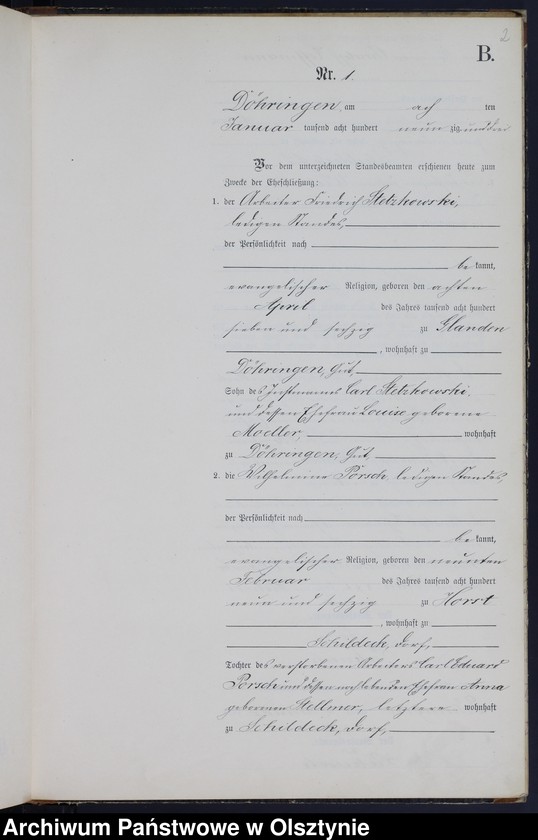 2
B.
Nr. 1.
Döhringen, am ach ten
Januar tausend acht hundert neun zig und drei
Vor dem unterzeichneten Standesbeamten erschienen heute zum
Zwecke der Eheschließung:
1. der Arbeiter Friedrich Stetzkowski,
ledigen Standes,
der Persönlichkeit nach
be kannt,
evangelischer Religion, geboren den achten
April des Jahres tausend acht hundert
sieben und sechzig zu Glanden
, wohnhaft zu
Döhringen, Gut,
Sohn des Instmanns Carl Stetzkowski,
und dessen Ehefrau Louise geborene
Moeller, wohnhaft
zu Döhringen, Gut,
2. die Wilhelmine Porsch, ledigen Standes,
der Persönlichkeit nach
be kannt,
evangelischer Religion, geboren den neunten
Februar des Jahres tausend acht hundert
neun und sechzig zu Horst
, wohnhaft zu
Schildeck, Dorf,
Tochter des verstorbenen Arbeiters Carl Eduard
Porsch und dessen noch lebenden Ehefrau Anna
geborenen Stellmer, letztere wohnhaft
zu Schildeck, Dorf,
Archiwum Państwowe w Olsztynie